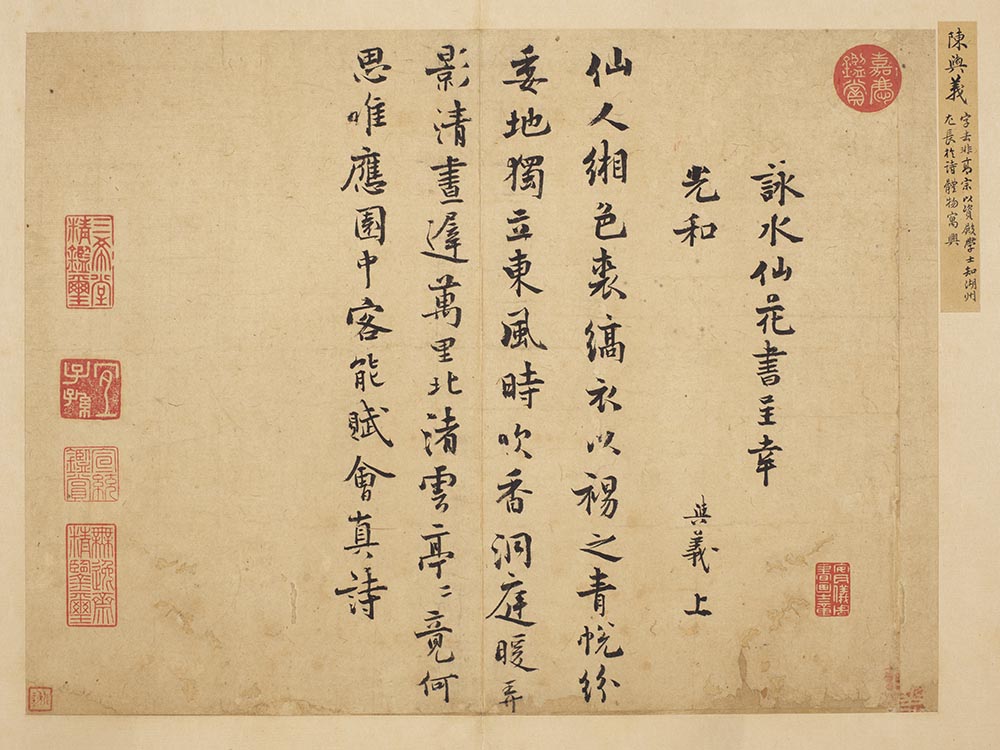 陳與義
字去非高宗以資殿學士知湖州
尤長於詩體物寓興
詠水仙花書呈幸
光和
與義上
仙人緗色裘縞衣以裼之青帨紛
委地獨立東風時吹香洞庭暖弄
影清晝遲萬里北渚雲亭亭竟何
思唯應園中客能賦會真詩
嘉慶鑑賞
三希堂精鑑璽
宜子孫
宣統鑑賞
無逸齋精鑑璽